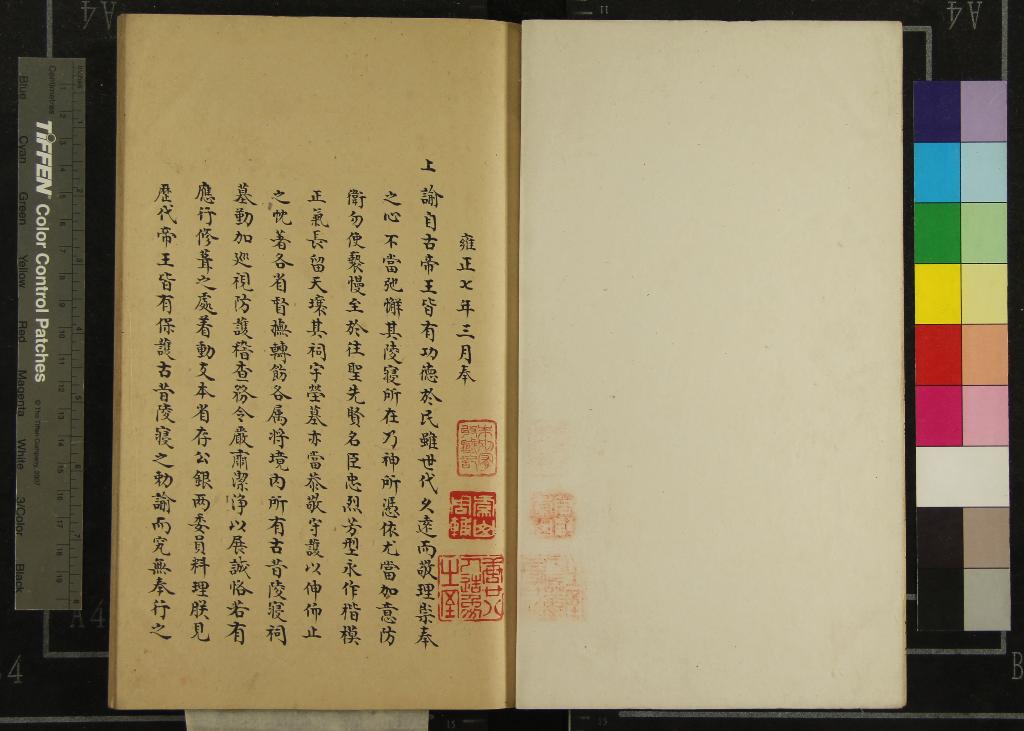 雍正七年三月奉
上諭自古帝王皆有功德於民雖世代久遠而敬理崇奉
之心不當弛懈其陵寢所在乃神所憑依尤當加意防
衛勿使褻慢至於往聖先賢名臣忠烈芳型永作楷模
正氣長留天壤其祠宇塋墓亦當恭敬守護以伸仰止
之忱著各省督撫轉飭各属將境內所有古昔陵寢祠
墓勤加廵視防護稽查務令嚴肅潔淨以展誠恪若有
應行修葺之處著動支本省存公銀两委員料理朕見
歷代帝王皆有保護古昔陵寢之勅諭而究無奉行之
TIFFEN Color Control Patches
© The Tiffen Company, 2007
Centimetres
Inches
Blue
Cyan
Green
Yellow
Red
Magenta
White
3/Color
Black
A4
4
B